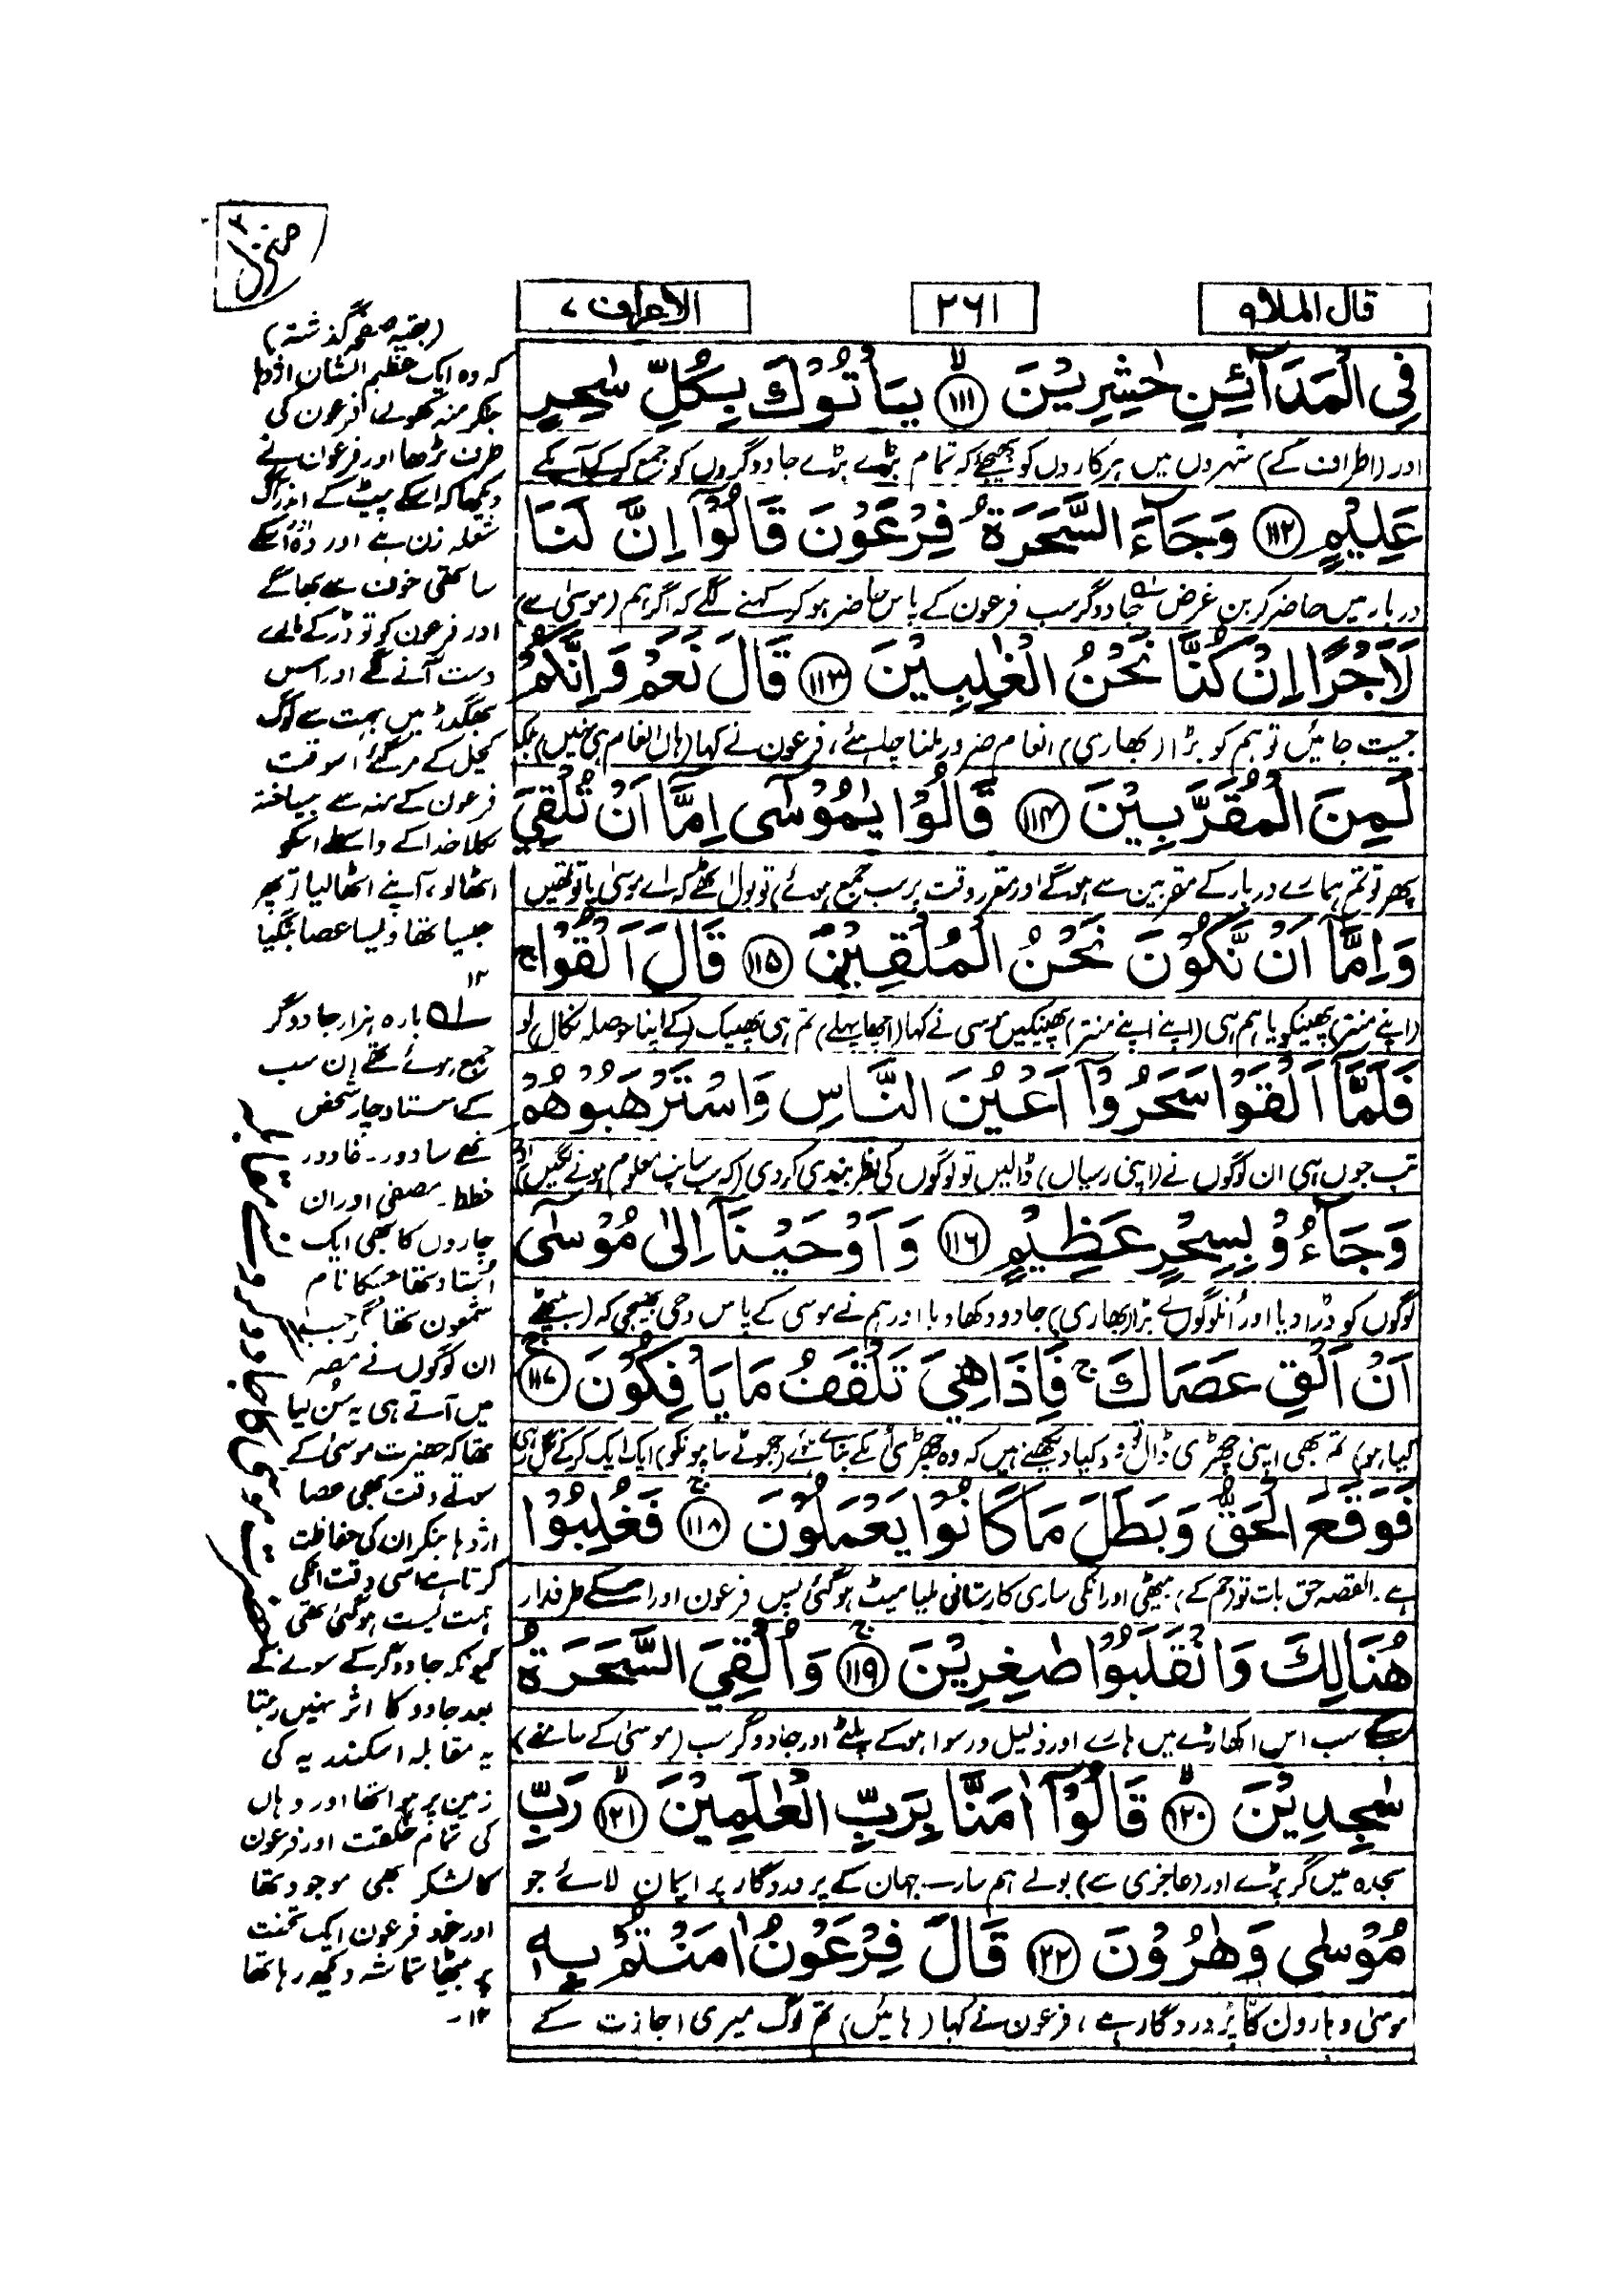 منزل ۲
قال الملا ۹
۲۶۱
الاعراف ۷
فِی الْمَدَآئِنِ حٰشِرِیْنَ ۱۱۱ یَاْتُوْكَ بِكُلِّ سٰحِرٍ
اور (اطراف کے) شہروں میں ہرکاروں کو بھیجئے کہ تمام بڑے بڑے جادوگروں کو جمع کر کے آپ کے
عَلِیْمٍ ۱۱۲ وَجَآءَ السَّحَرَةُ فِرْعَوْنَ قَالُوْۤا اِنَّ لَنَا
دربار میں حاضر کر یں غرض جادوگر سب فرعون کے پاس حاضر ہو کر کہنے لگے کہ اگر ہم (موسیٰ سے)
لَاَجْرًا اِنْ كُنَّا نَحْنُ الْغٰلِبِیْنَ ۱۱۳ قَالَ نَعَمْ وَاِنَّكُمْ
جیت جائیں تو ہم کو بڑا (بھاری) انعام ضرور ملنا چاہئے، فرعون نے کہا (ہاں انعام ہی نہیں) بلکہ
لَمِنَ الْمُقَرَّبِیْنَ ۱۱۴ قَالُوْا یٰمُوْسٰۤی اِمَّاۤ اَنْ تُلْقِیَ
پھر تو تم ہمارے دربار کے مقربین سے ہوگے اور مقرر وقت پر سب جمع ہوئے) تو بول اٹھے کہ اے موسیٰ یا تو تمھیں
وَاِمَّاۤ اَنْ نَّكُوْنَ نَحْنُ الْمُلْقِیْنَ ۱۱۵ قَالَ اَلْقُوْا ج
(اپنے منتر) پھینکو یا ہم ہی (اپنے اپنے منتر) پھینکیں موسی نے کہا (اچھا پہلے) تم ہی پھینک (کے اپنا حوصلہ نکال) لو
فَلَمَّاۤ اَلْقَوْا سَحَرُوْۤا اَعْیُنَ النَّاسِ وَاسْتَرْهَبُوْهُمْ
تب جوں ہی ان لوگوں نے (اپنی رسیاں) ڈالیں تو لوگوں کی نظر بندی کردی (کہ سب سانپ معلوم ہونے لگیں) اور
وَجَآءُوْ بِسِحْرٍ عَظِیْمٍ ۱۱۶ وَاَوْحَیْنَاۤ اِلٰی مُوْسٰۤی
لوگوں کو ڈرا دیا اور اُنلوگوں نے بڑا (بھاری) جادو دکھا دیا اور ہم نے موسی کے پاس وحی بھیجی کہ (بیٹھے
اَنْ اَلْقِ عَصَاكَ ج فَاِذَا هِیَ تَلْقَفُ مَا یَاْفِكُوْنَ ۱۱۷ ج
کیا ہو) تم بھی اپنی چھڑی ڈال دو کیا دیکھتے ہیں کہ وہ چھڑی اُن کے بنائے ہوئے (جھوٹے سانپونکو) ایک ایک کر کے نگل رہی
فَوَقَعَ الْحَقُّ وَبَطَلَ مَا كَانُوْا یَعْمَلُوْنَ ۱۱۸ ج فَغُلِبُوْا
ہے۔ القصہ حق بات تو (جم کے) بیٹھی اور انکی ساری کارستانی ملیا میٹ ہوگئی پس فرعون اور اسکے طرفدار
هُنَالِكَ وَانْقَلَبُوْا صٰغِرِیْنَ ۱۱۹ ج وَاُلْقِیَ السَّحَرَةُ
سب کے سب اس اکھاڑے میں ہارے اور ذلیل و رسوا ہو کے پلٹے اور جادوگر سب (موسیٰ کے سامنے)
سٰجِدِیْنَ ۱۲۰ قَالُوْۤا اٰمَنَّا بِرَبِّ الْعٰلَمِیْنَ ۱۲۱ رَبِّ
سجدہ میں گر پڑے اور (عاجزی سے) بولے ہم سارے جہان کے پروردگار پر ایمان لائے جو
مُوْسٰی وَهٰرُوْنَ ۱۲۲ قَالَ فِرْعَوْنُ اٰمَنْتُمْ بِهٖ
موسیٰ و ہارون کا پروردگار ہے، فرعون نے کہا (ہائیں) تم لوگ میری اجازت کے
(بقیہ صفحہ گذشتہ)
کہ وہ ایک عظیم الشان اژدہا
بنکر منہ کھولے فرعون کی
طرف بڑھا اور فرعون نے
دیکھا کہ اسکے پیٹ کے اندر آگ
شعلہ زن ہے اور وہ اور اسکے
ساتھی خوف سے بھاگے
اور فرعون کو تو ڈر کے مارے
دست آنے لگے اور اس
بھگدڑ میں بہت سے لوگ
کچل کے مر گئے اسوقت
فرعون کے منہ سے بیساختہ
نکلا خدا کے واسطے اسکو
اٹھالو، آپنے اٹھا لیا تو پھر
جیسا تھا ویسا عصا بنگیا
۱۲
لہ بارہ ہزار جادوگر
جمع ہوئے تھے ان سب
کے استاد چار شخص
تھے سادور۔ غادور
خطط۔ مصفی اور ان
چاروں کا بھی ایک
اُستاد تھا جسکا نام
شمعون تھا مگر جب
ان لوگوں نے مصر
میں آتے ہی یہ سُن لیا
تھا کہ حضرت موسیٰ کے
سوتے وقت بھی عصا
اژدہا بنکر ان کی حفاظت
کرتا ہے اسی وقت انکی
ہمت پست ہوگئی تھی
کیونکہ جادوگر کے سونے کے
بعد جادو کا اثر نہیں رہتا
یہ مقابلہ اسکندریہ کی
زمین پر ہوا تھا اور وہاں
کی تمام خلقت اور فرعون
کا لشکر بھی موجود تھا
اور خود فرعون ایک تخت
پر بیٹھا تماشہ دیکھ رہا تھا
۱۲۔
حضرت موسیٰ کا جادوگروں سے مقابلہ